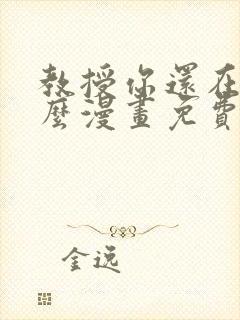 教授你還在
麼漫畫免費
金逸